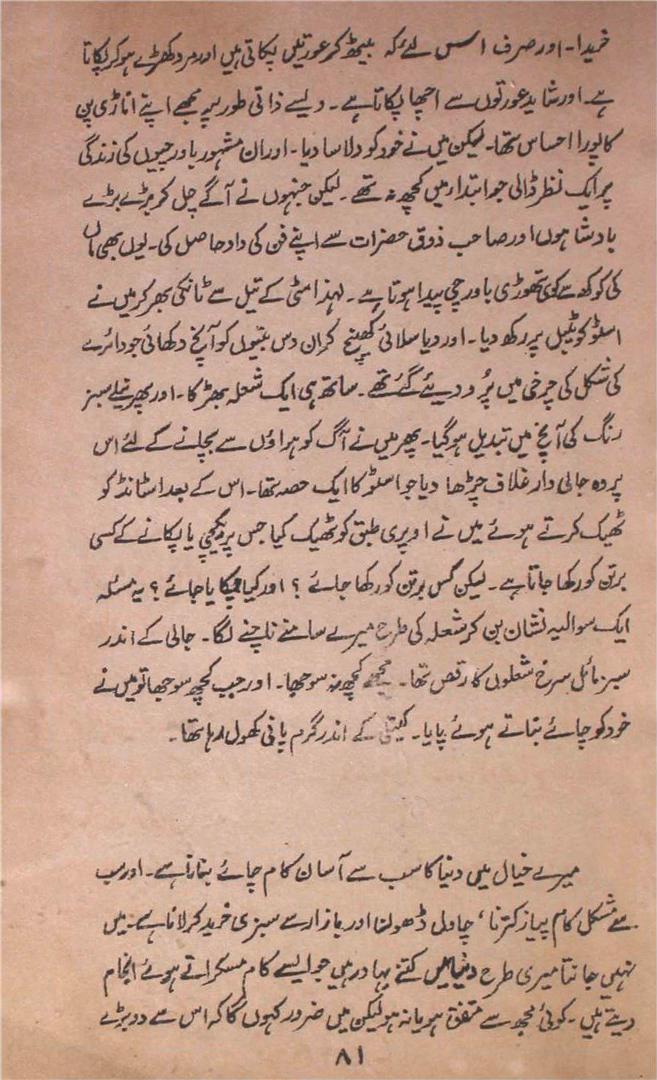 خریدا۔ اور صرف اس لئے کہ بیٹھ کر عورتیں پکاتی ہیں اور مرد کھڑے ہو کر پکاتا
ہے۔ اور شاید عورتوں سے اچھا پکاتا ہے۔ ویسے ذاتی طور پر مجھے اپنے اناڑی پن
کا پورا احساس تھا۔ لیکن میں نے خود کو دلاسا دیا۔ اور ان مشہور باورچیوں کی زندگی
پر ایک نظر ڈالی جو ابتدار میں کچھ نہ تھے۔ لیکن جنہوں نے آگے چل کر بڑے بڑے
بادشاہوں اور صاحب ذوق حضرات سے اپنے فن کی داد حاصل کی۔ یوں بھی ماں
کی کوکھ سے کوئی تھوڑی باورچی پیدا ہوتا ہے۔ لہذا مٹی کے تیل سے ٹانکی بھر کر میں نے
اسٹو کو ٹیبل پر رکھ دیا۔ اور دیا سلائی کھینچ کر ان دس بتیوں کو آنچ دکھائی جو دائرے
کی شکل کی چرخی میں پرو دیئے گئے تھے۔ ساتھ ہی ایک شعلہ بھڑکا۔ اور پھر نیلے سبز
رنگ کی آنچ میں تبدیل ہو گیا۔ پھر میں نے آگ کو ہواؤں سے بچانے کے لئے اس
پر وہ جالی دار غلاف چڑھا دیا جو اسٹو کا ایک حصہ تھا۔ اس کے بعد اسٹانڈ کو
ٹھیک کرتے ہوئے میں نے اوپری طبق کو ٹھیک کیا جس پر دیگچی یا پکانے کے کسی
برتن کو رکھا جاتا ہے۔ لیکن کس برتن کو رکھا جائے ؟ اور کیا پکایا جائے ؟ یہ مسئلہ
ایک سوالیہ نشان بن کر شعلہ کی طرح میرے سامنے ناچنے لگا۔ جالی کے اندر
سبز مائل سرخ شعلوں کا رقص تھا۔ مجھے کچھ نہ سوجھا۔ اور جب کچھ سوجھا تو میں نے
خود کو چائے بناتے ہوئے پایا۔ کیتلی کے اندر گرم پانی کھول رہا تھا۔
میرے خیال میں دنیا کا سب سے آسان کام چائے بنانا ہے۔ اور سب
سے مشکل کام پیاز کترنا، چاول ڈھولنا اور بازار سے سبزی خرید کر لانا ہے۔ میں
نہیں جانتا میری طرح دنیا میں کتنے بہادر ہیں جو ایسے کام مسکراتے ہوئے انجام
دیتے ہیں۔ کوئی مجھ سے متفق ہو یا نہ ہو لیکن میں ضرور کہوں گا کہ اس سے دو بڑے
۸۱